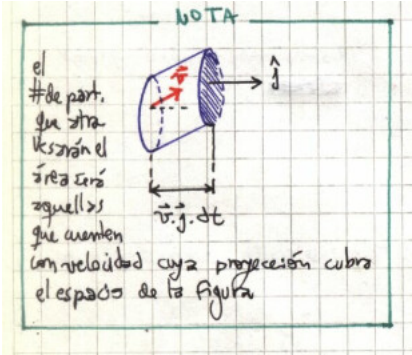 NOTA
el
#de part.
que atra
vesarán el
área será
aquellas
que cuenten
con velocidad cuya proyección cubra
el espacio de la figura
v⃗
ĵ
v⃗.ĵ.dt